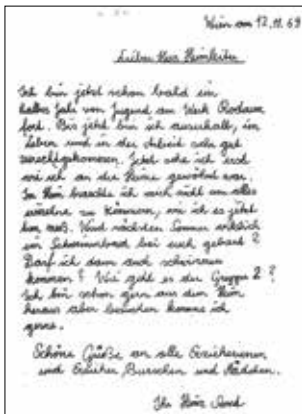 Wien am 12.11.69
Lieber Herr Heimleiter
Ich bin jetzt schon bald ein
halbes Jahr von Jugend am Werk Rodaun
fort. Bis jetzt bin ich ausserhalb, im
Leben und in der Arbeit sehr gut
zurechtgekommen. Jetzt sehe ich erst
wie ich an die Heime gewöhnt war.
Im Heim brauchte ich mich nicht um alles
einzelne zu kümmern, wie ich es jetzt
tun muß. Wird nächsten Sommer wirklich
ein Schwimmbad bei euch gebaut?
Darf ich dann auch schwimmen
kommen? Wie geht es der Gruppe 2?
Ich bin schon gern aus dem Heim
heraus aber besuchen komme ich
gerne.
Schöne Grüße an alle Erzieherinnen
und Erzieher, Burschen und Mädchen.
Ihr Heinz